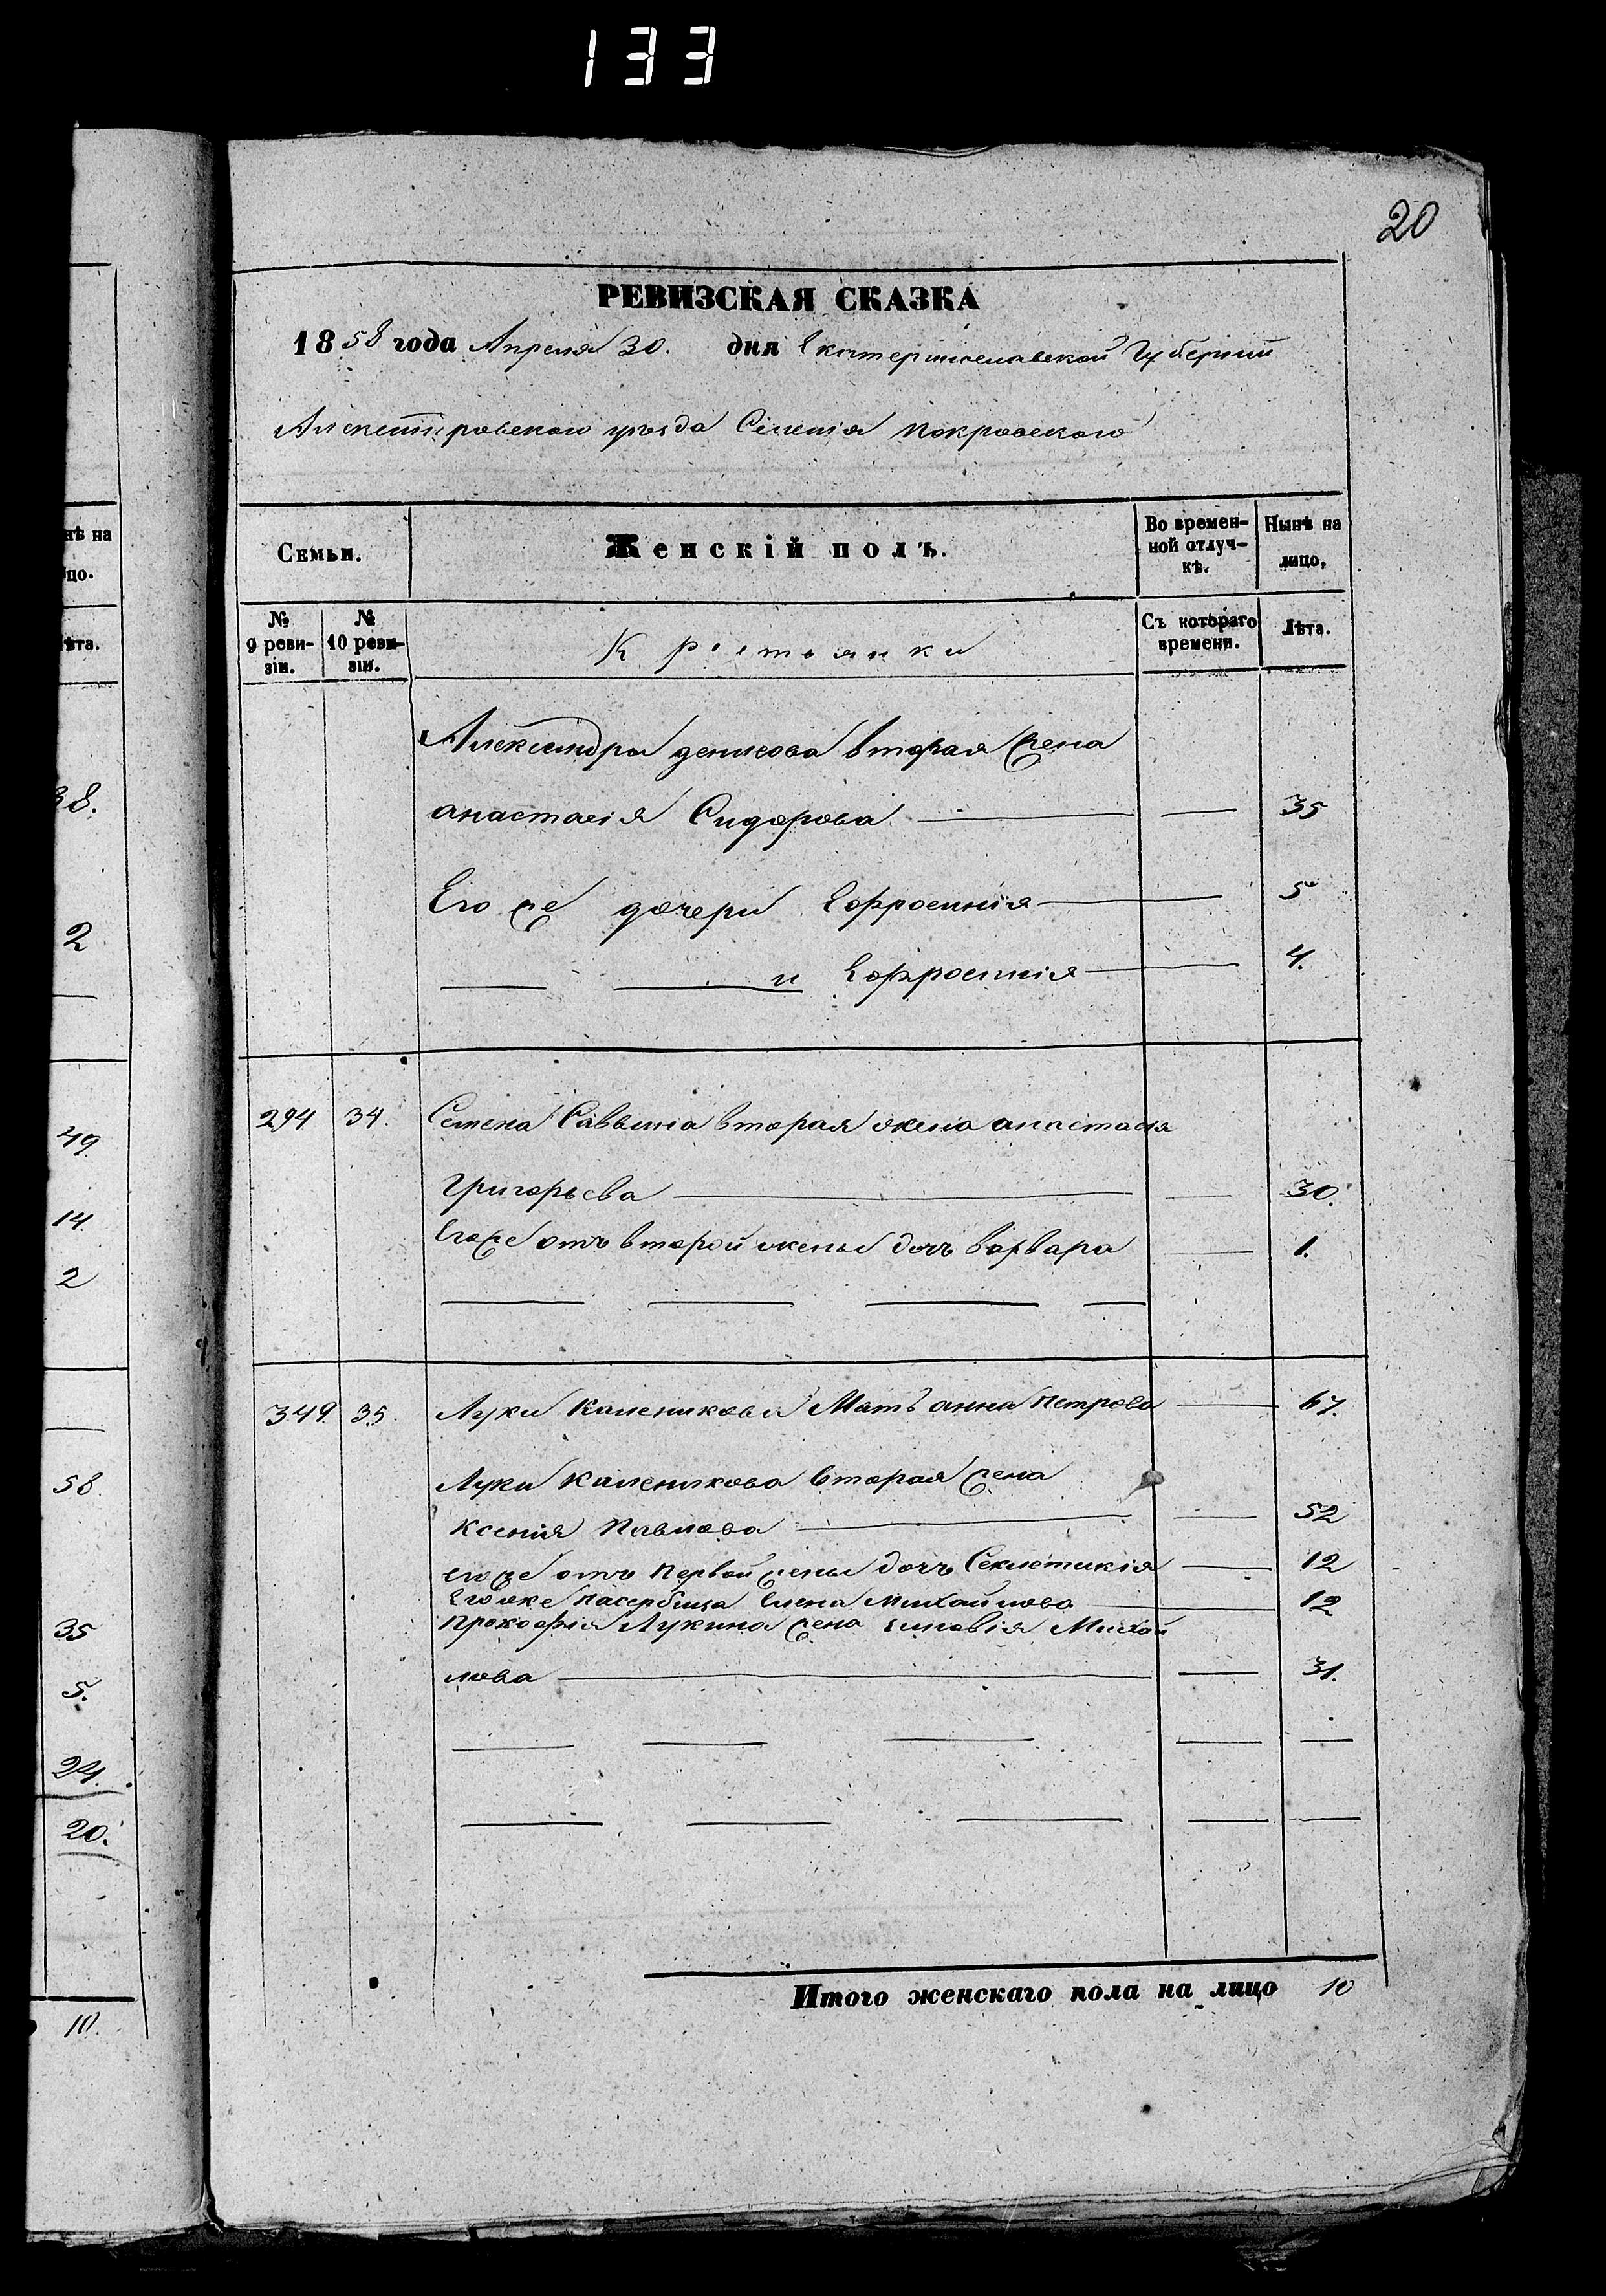 133
20
РЕВИЗСКАЯ СКАЗКА
1858 года Апреля 30. дня Екатеринославской Губернии
Александровского уезда Селения Покровского
Семьи. Женскій полъ. Во временной отлучкѣ. Нынѣ на лицо.
№ 9 ревизіи. № 10 ревизіи. Крестьянки Съ котораго времени. Лѣта.
Александра денисова вторая жена
анастасія Сидорова — — 35
Его же дочери Ефросинія — — 5
— — и Ефросинія — — 4.
294 34. Семена Саввина вторая жена анастасія
Григорьева — — 30.
Егоже отъ второй жены дочь варвара — 1.
349. 35. Луки Каленикова Мать анна Петрова — 67.
Луки Каленикова вторая жена
Ксенія Павлова — — 52
егоже отъ Первой жены дочь Секлетикія — 12
Егоже Пасербица Елена Михайлова — 12
Прокофія Лукина жена Михай
лова — — 31.
Итого женскаго пола на лицо 10
нѣ на
цо.
ѣта.
38.
2
49.
14.
2
58.
35
5.
24.
20.
10.